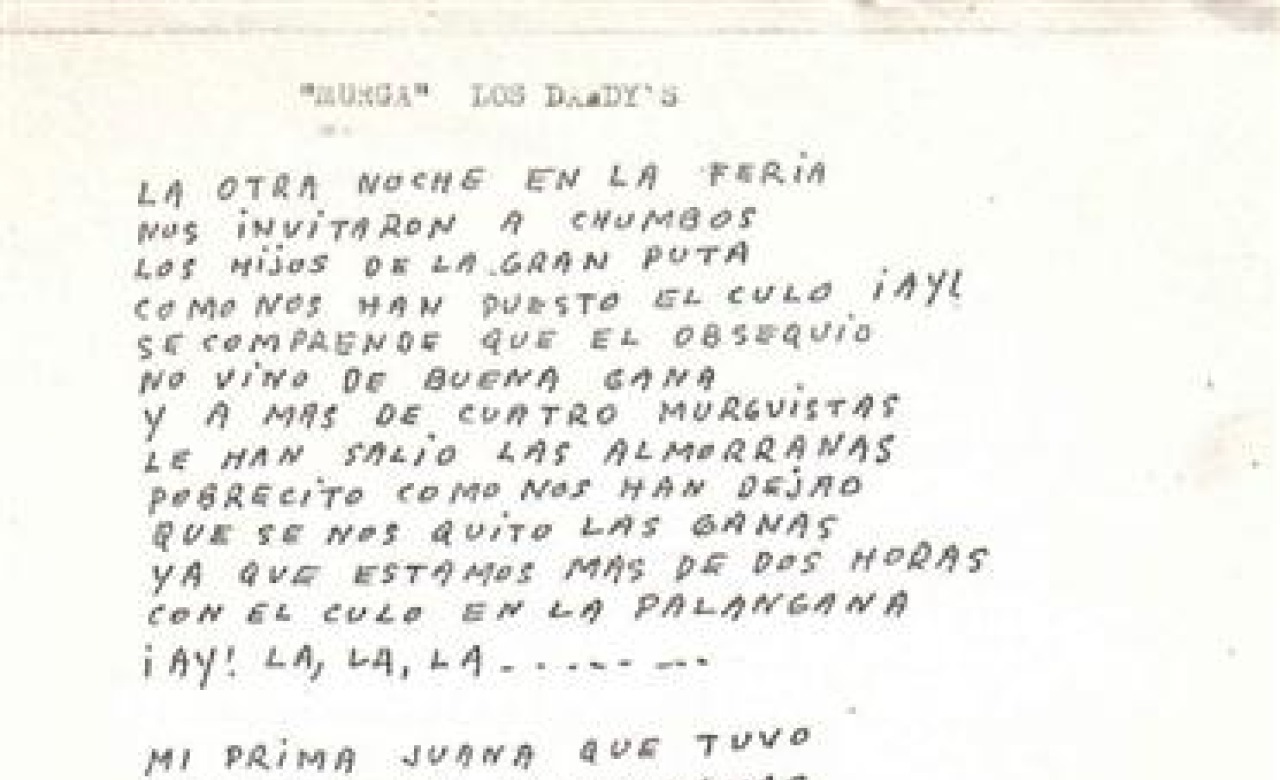 "MURGA" LOS DANDY'S
LA OTRA NOCHE EN LA FERiA
NOS iNViTARON A CHUMBOS
LOS HijOS DE LA GRAN PUTA
COMO NOS HAN PUESTO EL CULO ¡AY!
SE COMPRENDE QUE EL OBSEQUiO
NO ViNO DE BUENA GANA
Y A MAS DE CUATRO MURGUiSTAS
LE HAN SALiO LAS ALMORRANAS
POBRECiTO COMO NOS HAN DEjAO
QUE SE NOS QUiTO LAS GANAS
YA QUE ESTAMOS MAS DE DOS HORAS
CON EL CULO EN LA PALANGANA
¡AY! LA, LA, LA - . . . - - - - .
Mi PRiMA JUANA QUE TUVO